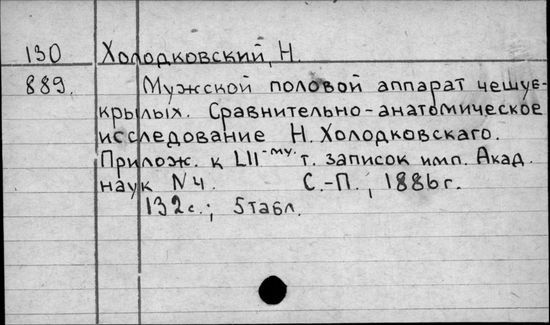 130 Холодковский, Н.
889. Мужской половой аппарат чешуе-
крылых. Сравнительно-анатомическое
исследование Н. Холодковскаго.
Прилож. к LII-му т. записок имп. Акад.
наук N4. С.-П., 1886г.
132с.; 5табл.